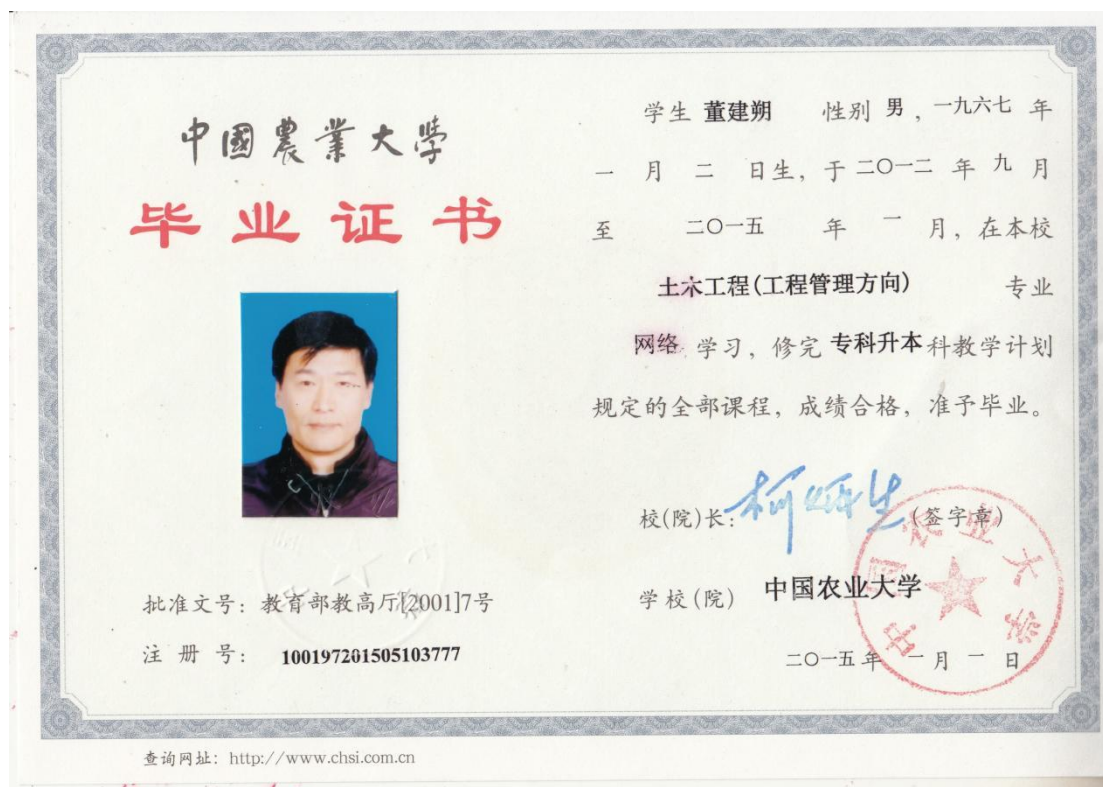 中國農業大學
毕业证书
批准文号：教育部教高厅[2001]7号
注 册 号： 100197201505103777
学生 董建朔 性别 男，一九六七 年
一 月 二 日生，于二〇一二 年 九 月
至 二〇一五 年 一 月，在本校
土木工程(工程管理方向) 专业
网络 学习，修完 专科升本 科教学计划
规定的全部课程，成绩合格，准予毕业。
校(院)长：柯炳生(签字章)
学校(院) 中国农业大学
二〇一五 年 一 月 一 日
中国农业大学
查询网址：http://www.chsi.com.cn